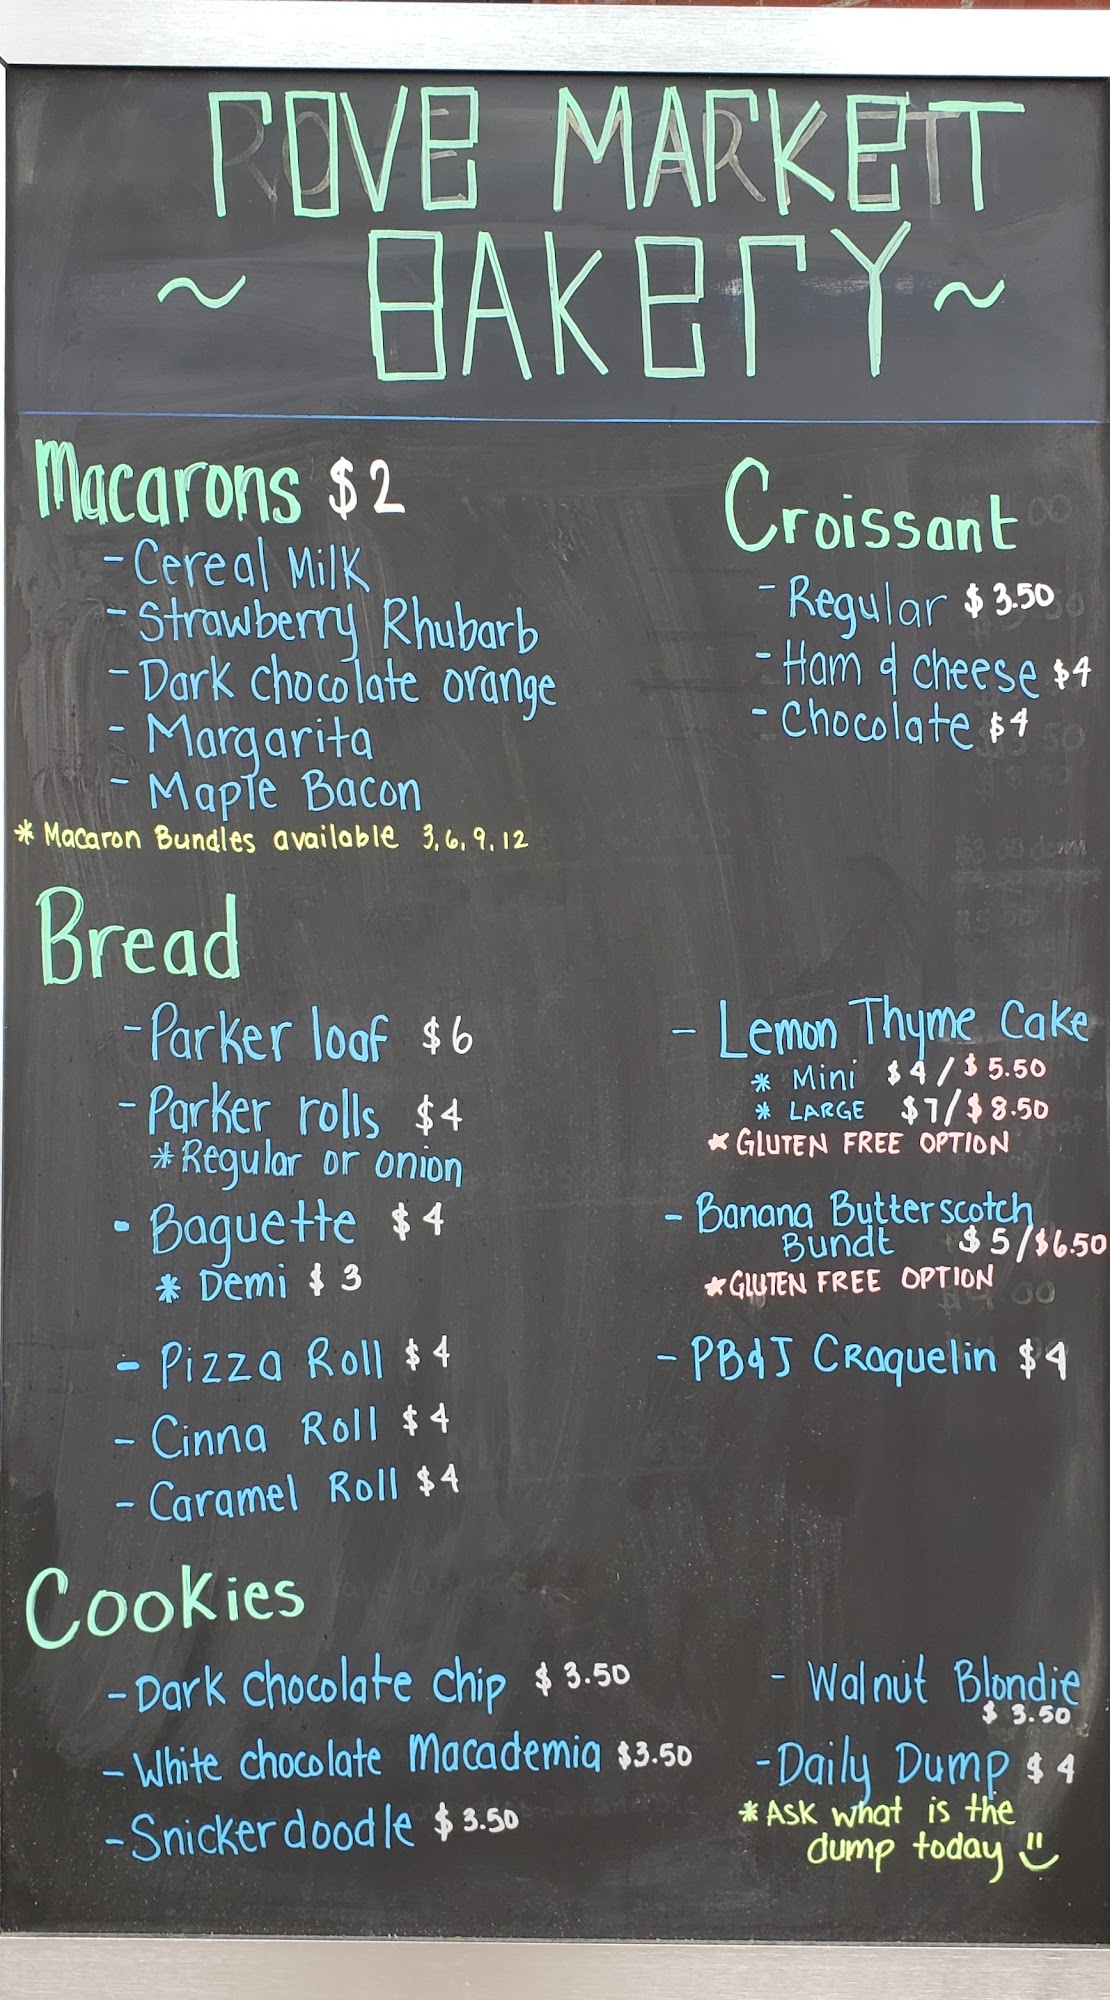 ROVE MARKET
~ BAKERY ~
Macarons $2
- Cereal Milk
- Strawberry Rhubarb
- Dark chocolate orange
- Margarita
- Maple Bacon
* Macaron Bundles available 3, 6, 9, 12
Croissant
- Regular $3.50
- Ham & cheese $4
- Chocolate $4
Bread
- Parker loaf $6
- Parker rolls $4
* Regular or onion
- Baguette $4
* Demi $3
- Pizza Roll $4
- Cinna Roll $4
- Caramel Roll $4
- Lemon Thyme Cake
* Mini $4/$5.50
* LARGE $7/$8.50
* GLUTEN FREE OPTION
- Banana Butterscotch
Bundt $5/$6.50
* GLUTEN FREE OPTION
- PB&J Craquelin $4
Cookies
- Dark chocolate chip $3.50
- White chocolate Macademia $3.50
- Snickerdoodle $3.50
- Walnut Blondie
$3.50
- Daily Dump $4
* Ask what is the
dump today